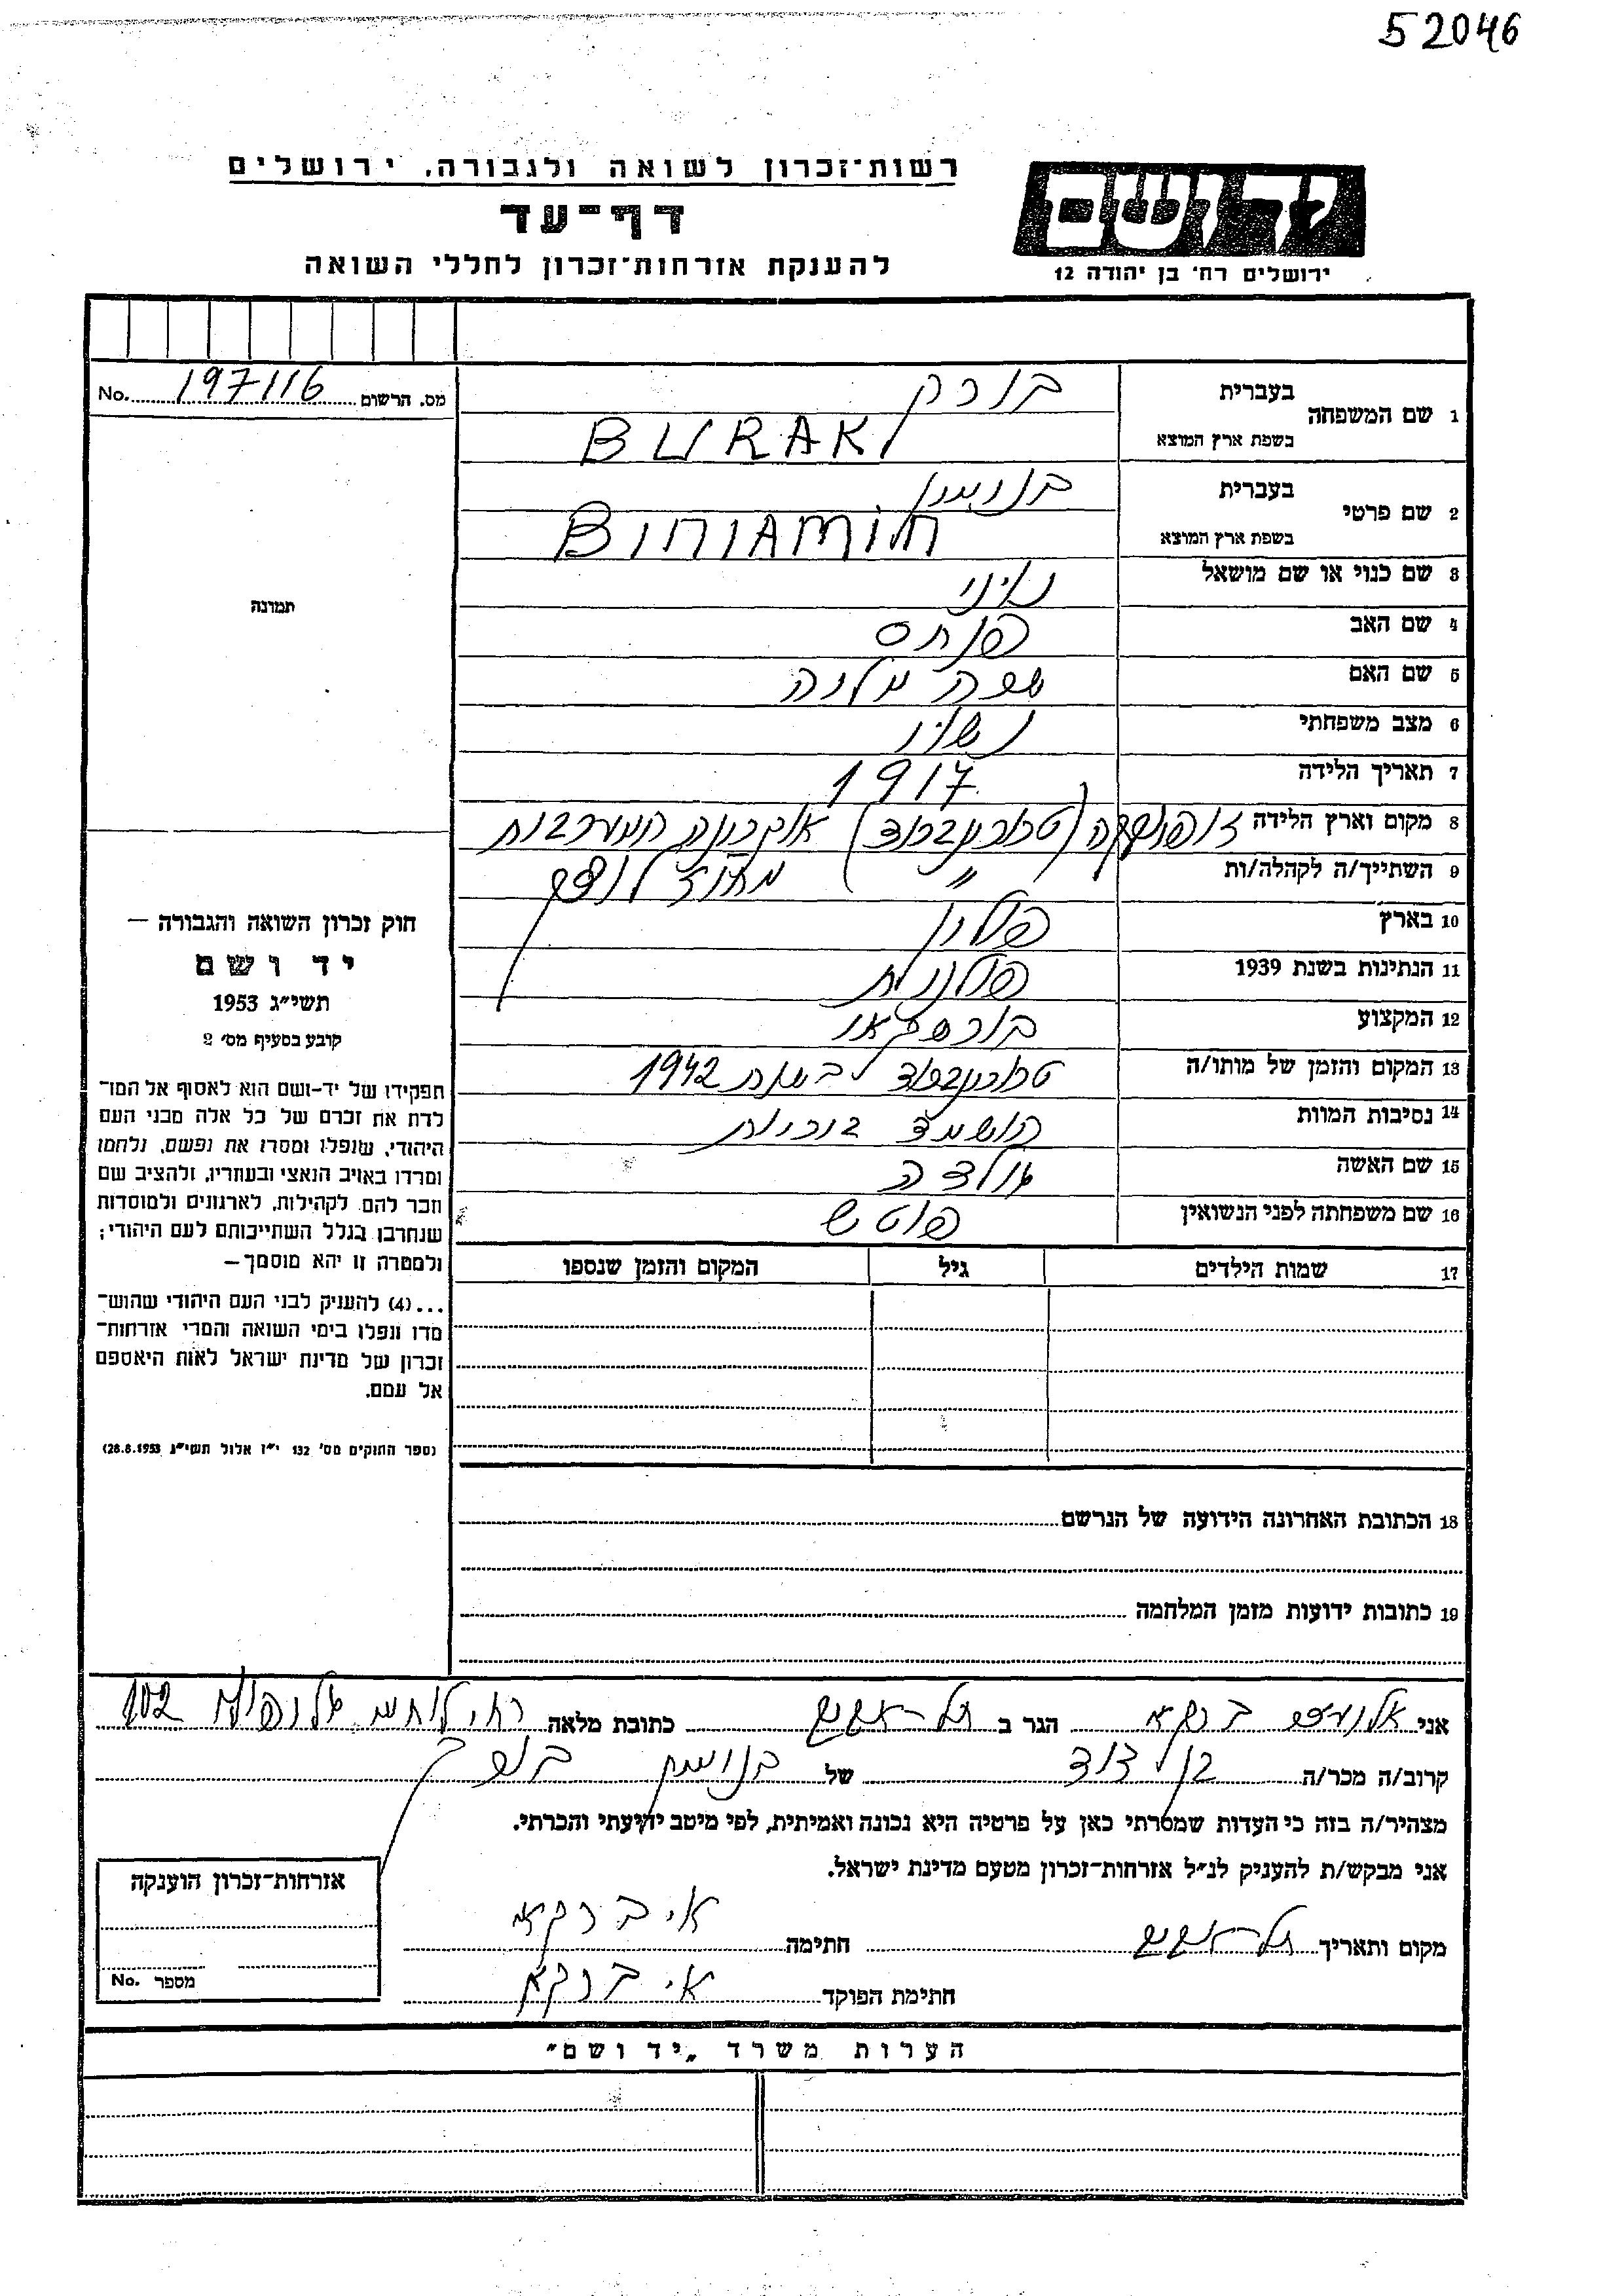 52046
רשות־זכרון לשואה ולגבורה, ירושלים
דף־עד
להענקת אזרחות־זכרון לחללי השואה
יד ושם
ירושלים רח׳ בן יהודה 12
מס. הרשום 197116 No.
1 שם המשפחה
בעברית בורק
בשפת ארץ המוצא BURAK
2 שם פרטי
בעברית בנימין
בשפת ארץ המוצא BINIAMIN
3 שם כנוי או שם מושאל
4 שם האב פנחס
5 שם האם
6 מצב משפחתי נשוי
7 תאריך הלידה 1917
8 מקום וארץ הלידה אוקרינה המערבית
9 השתייך/ה לקהלה/ות " מחוז
10 בארץ פולין
11 הנתינות בשנת 1939 פולנית
12 המקצוע
13 המקום והזמן של מותו/ה בשנת 1942
14 נסיבות המוות הושמד ביריות
15 שם האשה
16 שם משפחתה לפני הנשואין
17 שמות הילדים גיל המקום והזמן שנספו
18 הכתובת האחרונה הידועה של הנרשם
19 כתובות ידועות מזמן המלחמה
תמונה
חוק זכרון השואה והגבורה —
יד ושם
תשי״ג 1953
קובע בסעיף מס׳ 2
תפקידו של יד-ושם הוא לאסוף אל המו־
לדת את זכרם של כל אלה מבני העם
היהודי, שנפלו ומסרו את נפשם, נלחמו
ומרדו באויב הנאצי ובעוזריו, ולהציב שם
וזכר להם, לקהילות, לארגונים ולמוסדות
שנחרבו בגלל השתייכותם לעם היהודי;
ולמטרה זו יהא מוסמך —
...(4) להעניק לבני העם היהודי שהוש־
מדו ונפלו בימי השואה והמרי אזרחות־
זכרון של מדינת ישראל לאות היאספם
אל עמם.
(ספר החוקים מס׳ 132 י״ז אלול תשי״ג 28.8.1953)
אני ברקאי הגר ב תל-אביב כתובת מלאה רח׳ 102
קרוב/ה מכר/ה בן דוד של בנימין בורק
מצהיר/ה בזה כי העדות שמסרתי כאן על פרטיה היא נכונה ואמיתית, לפי מיטב ידיעתי והכרתי.
אני מבקש/ת להעניק לנ״ל אזרחות־זכרון מטעם מדינת ישראל.
מקום ותאריך תל-אביב חתימה א. ברקאי
חתימת הפוקד א. ברקאי
אזרחות־זכרון הוענקה
מספר No.
הערות משרד „יד ושם״